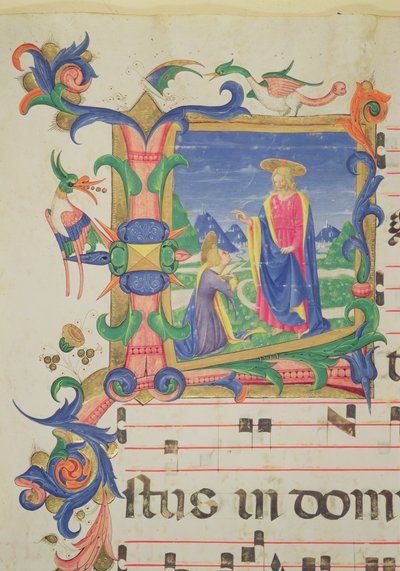 ſtus in domi